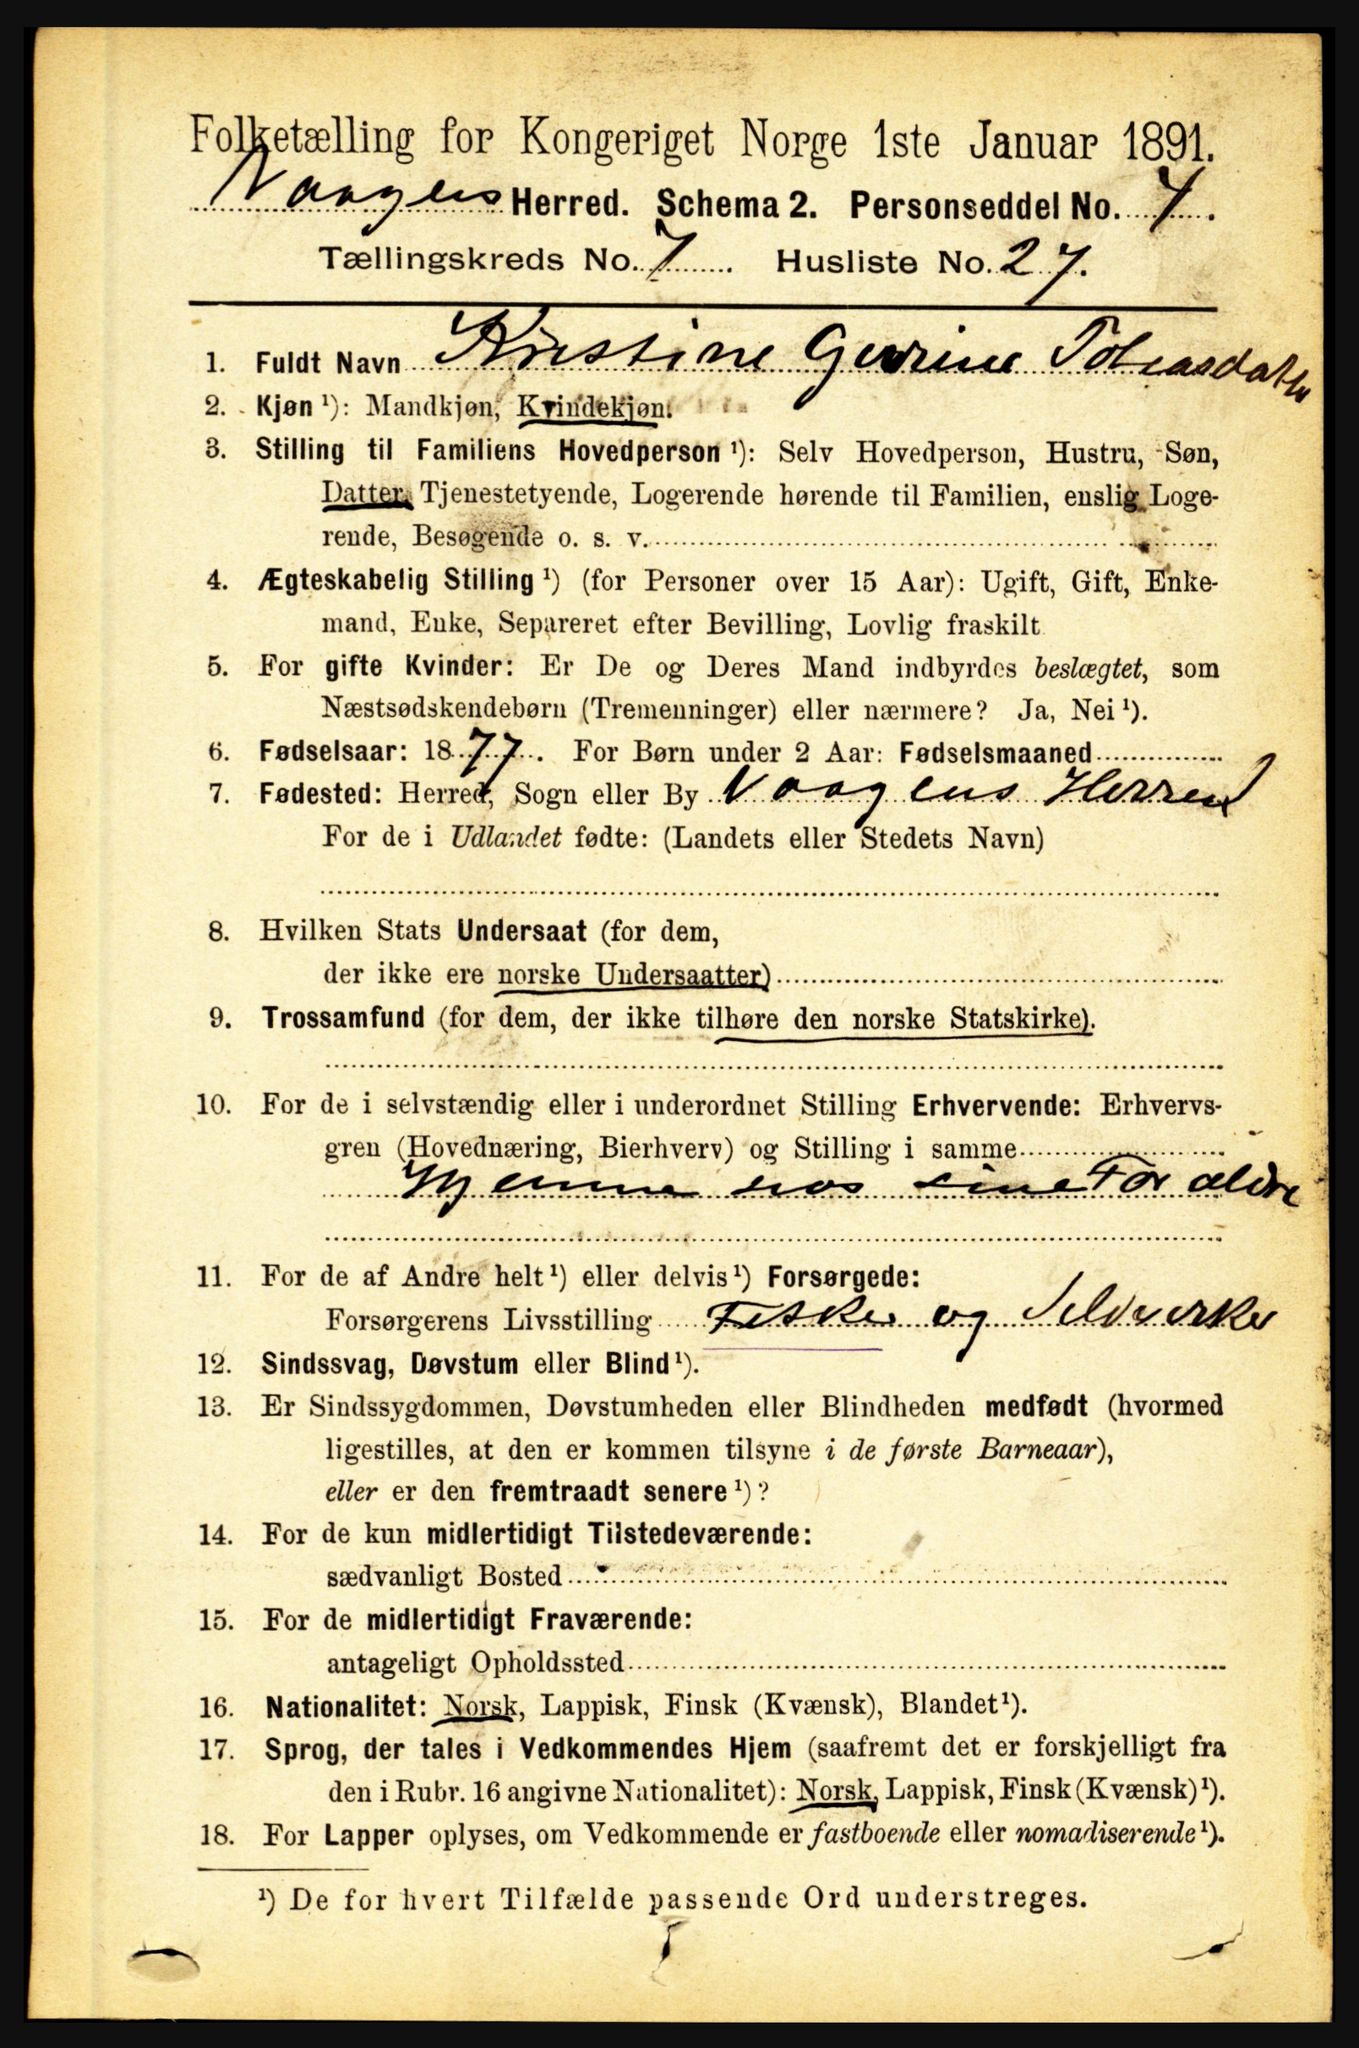 Folketælling for Kongeriget Norge 1ste Januar 1891.
Vaagens Herred. Schema 2. Personseddel No. 4.
Tællingskreds No. 7. Husliste No. 27.
1. Fuldt Navn Kristine Gurine Tobiasdatter
2. Kjøn ¹): Mandkjøn, Kvindekjøn.
3. Stilling til Familiens Hovedperson ¹): Selv Hovedperson, Hustru, Søn,
Datter, Tjenestetyende, Logerende hørende til Familien, enslig Loge-
rende, Besøgende o. s. v.
4. Ægteskabelig Stilling ¹) (for Personer over 15 Aar): Ugift, Gift, Enke-
mand, Enke, Separeret efter Bevilling, Lovlig fraskilt
5. For gifte Kvinder: Er De og Deres Mand indbyrdes beslægtet, som
Næstsødskendebørn (Tremenninger) eller nærmere? Ja, Nei ¹).
6. Fødselsaar: 1877. For Børn under 2 Aar: Fødselsmaaned
7. Fødested: Herred, Sogn eller By Vaagens Herred
For de i Udlandet fødte: (Landets eller Stedets Navn)
8. Hvilken Stats Undersaat (for dem,
der ikke ere norske Undersaatter)
9. Trossamfund (for dem, der ikke tilhøre den norske Statskirke).
10. For de i selvstændig eller i underordnet Stilling Erhvervende: Erhvervs-
gren (Hovednæring, Bierhverv) og Stilling i samme
Hjemme hos sine Forældre
11. For de af Andre helt ¹) eller delvis ¹) Forsørgede:
Forsørgerens Livsstilling Fisker og Selveier
12. Sindssvag, Døvstum eller Blind ¹).
13. Er Sindssygdommen, Døvstumheden eller Blindheden medfødt (hvormed
ligestilles, at den er kommen tilsyne i de første Barneaar),
eller er den fremtraadt senere ¹)?
14. For de kun midlertidigt Tilstedeværende:
sædvanligt Bosted
15. For de midlertidigt Fraværende:
antageligt Opholdssted
16. Nationalitet: Norsk, Lappisk, Finsk (Kvænsk), Blandet ¹).
17. Sprog, der tales i Vedkommendes Hjem (saafremt det er forskjelligt fra
den i Rubr. 16 angivne Nationalitet): Norsk, Lappisk, Finsk (Kvænsk) ¹).
18. For Lapper oplyses, om Vedkommende er fastboende eller nomadiserende ¹).
¹) De for hvert Tilfælde passende Ord understreges.